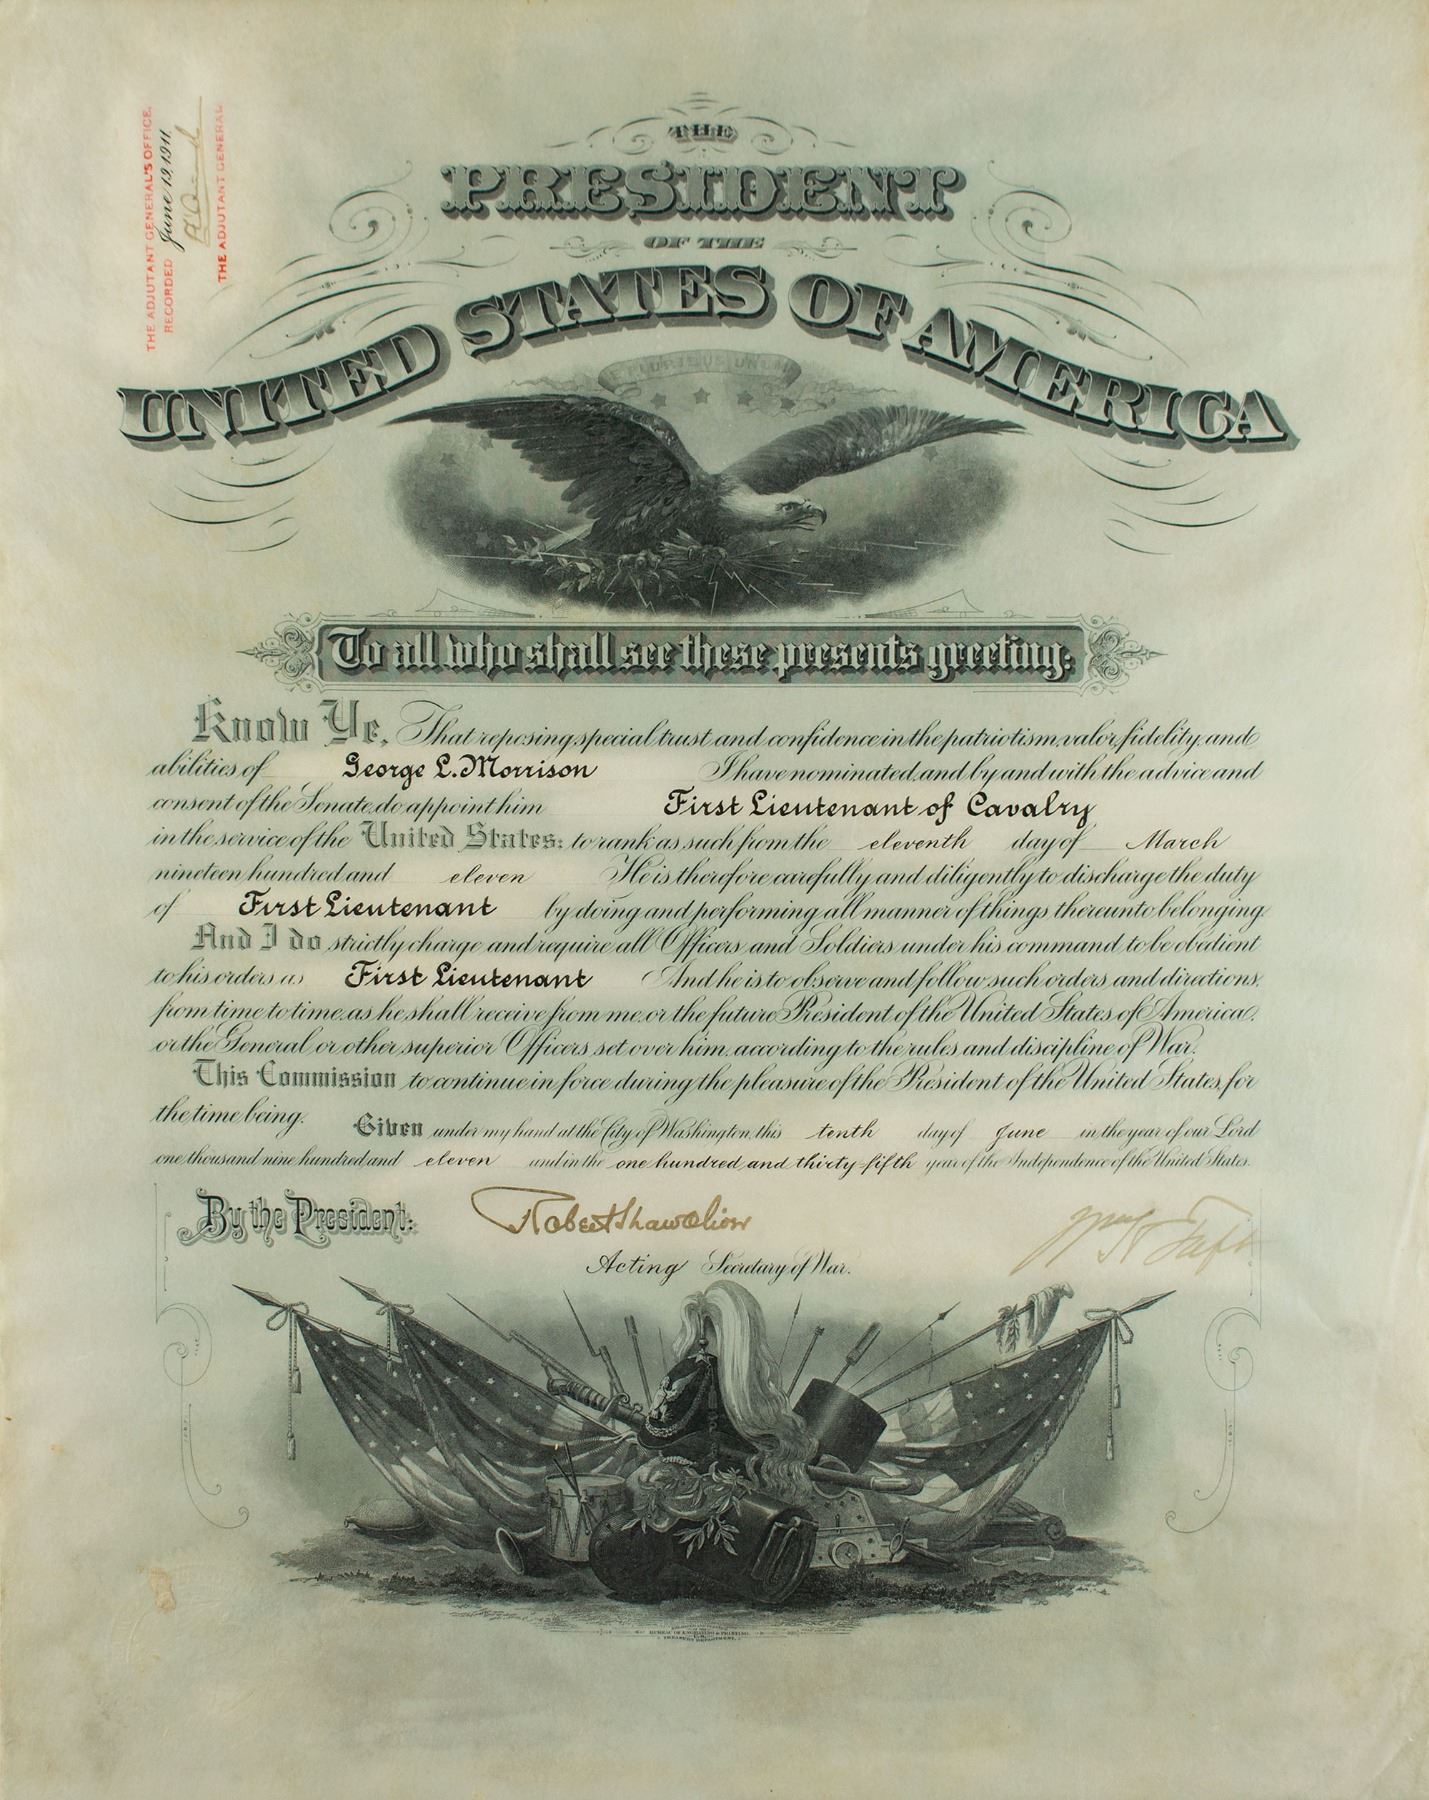 THE ADJUTANT GENERAL'S OFFICE,
RECORDED June 19, 1911
THE ADJUTANT GENERAL
THE
PRESIDENT
OF THE
UNITED STATES OF AMERICA
E PLURIBUS UNUM
To all who shall see these presents greeting:
Know Ye, That reposing special trust and confidence in the patriotism, valor, fidelity, and
abilities of George L. Morrison I have nominated, and by and with the advice and
consent of the Senate, do appoint him First Lieutenant of Cavalry
in the service of the United States: to rank as such from the eleventh day of March
nineteen hundred and eleven He is therefore carefully and diligently to discharge the duty
of First Lieutenant by doing and performing all manner of things thereunto belonging.
And I do strictly charge and require all Officers and Soldiers under his command to be obedient
to his orders as First Lieutenant And he is to observe and follow such orders and directions,
from time to time, as he shall receive from me, or the future President of the United States of America,
or the General or other superior Officers set over him, according to the rules and discipline of War.
This Commission to continue in force during the pleasure of the President of the United States, for
the time being. Given under my hand at the City of Washington, this tenth day of June in the year of our Lord
one thousand nine hundred and eleven and in the one hundred and thirty-fifth year of the Independence of the United States.
By the President: Robert Shaw Oliver Wm H Taft
Acting Secretary of War.
BUREAU OF ENGRAVING & PRINTING,
TREASURY DEPARTMENT.